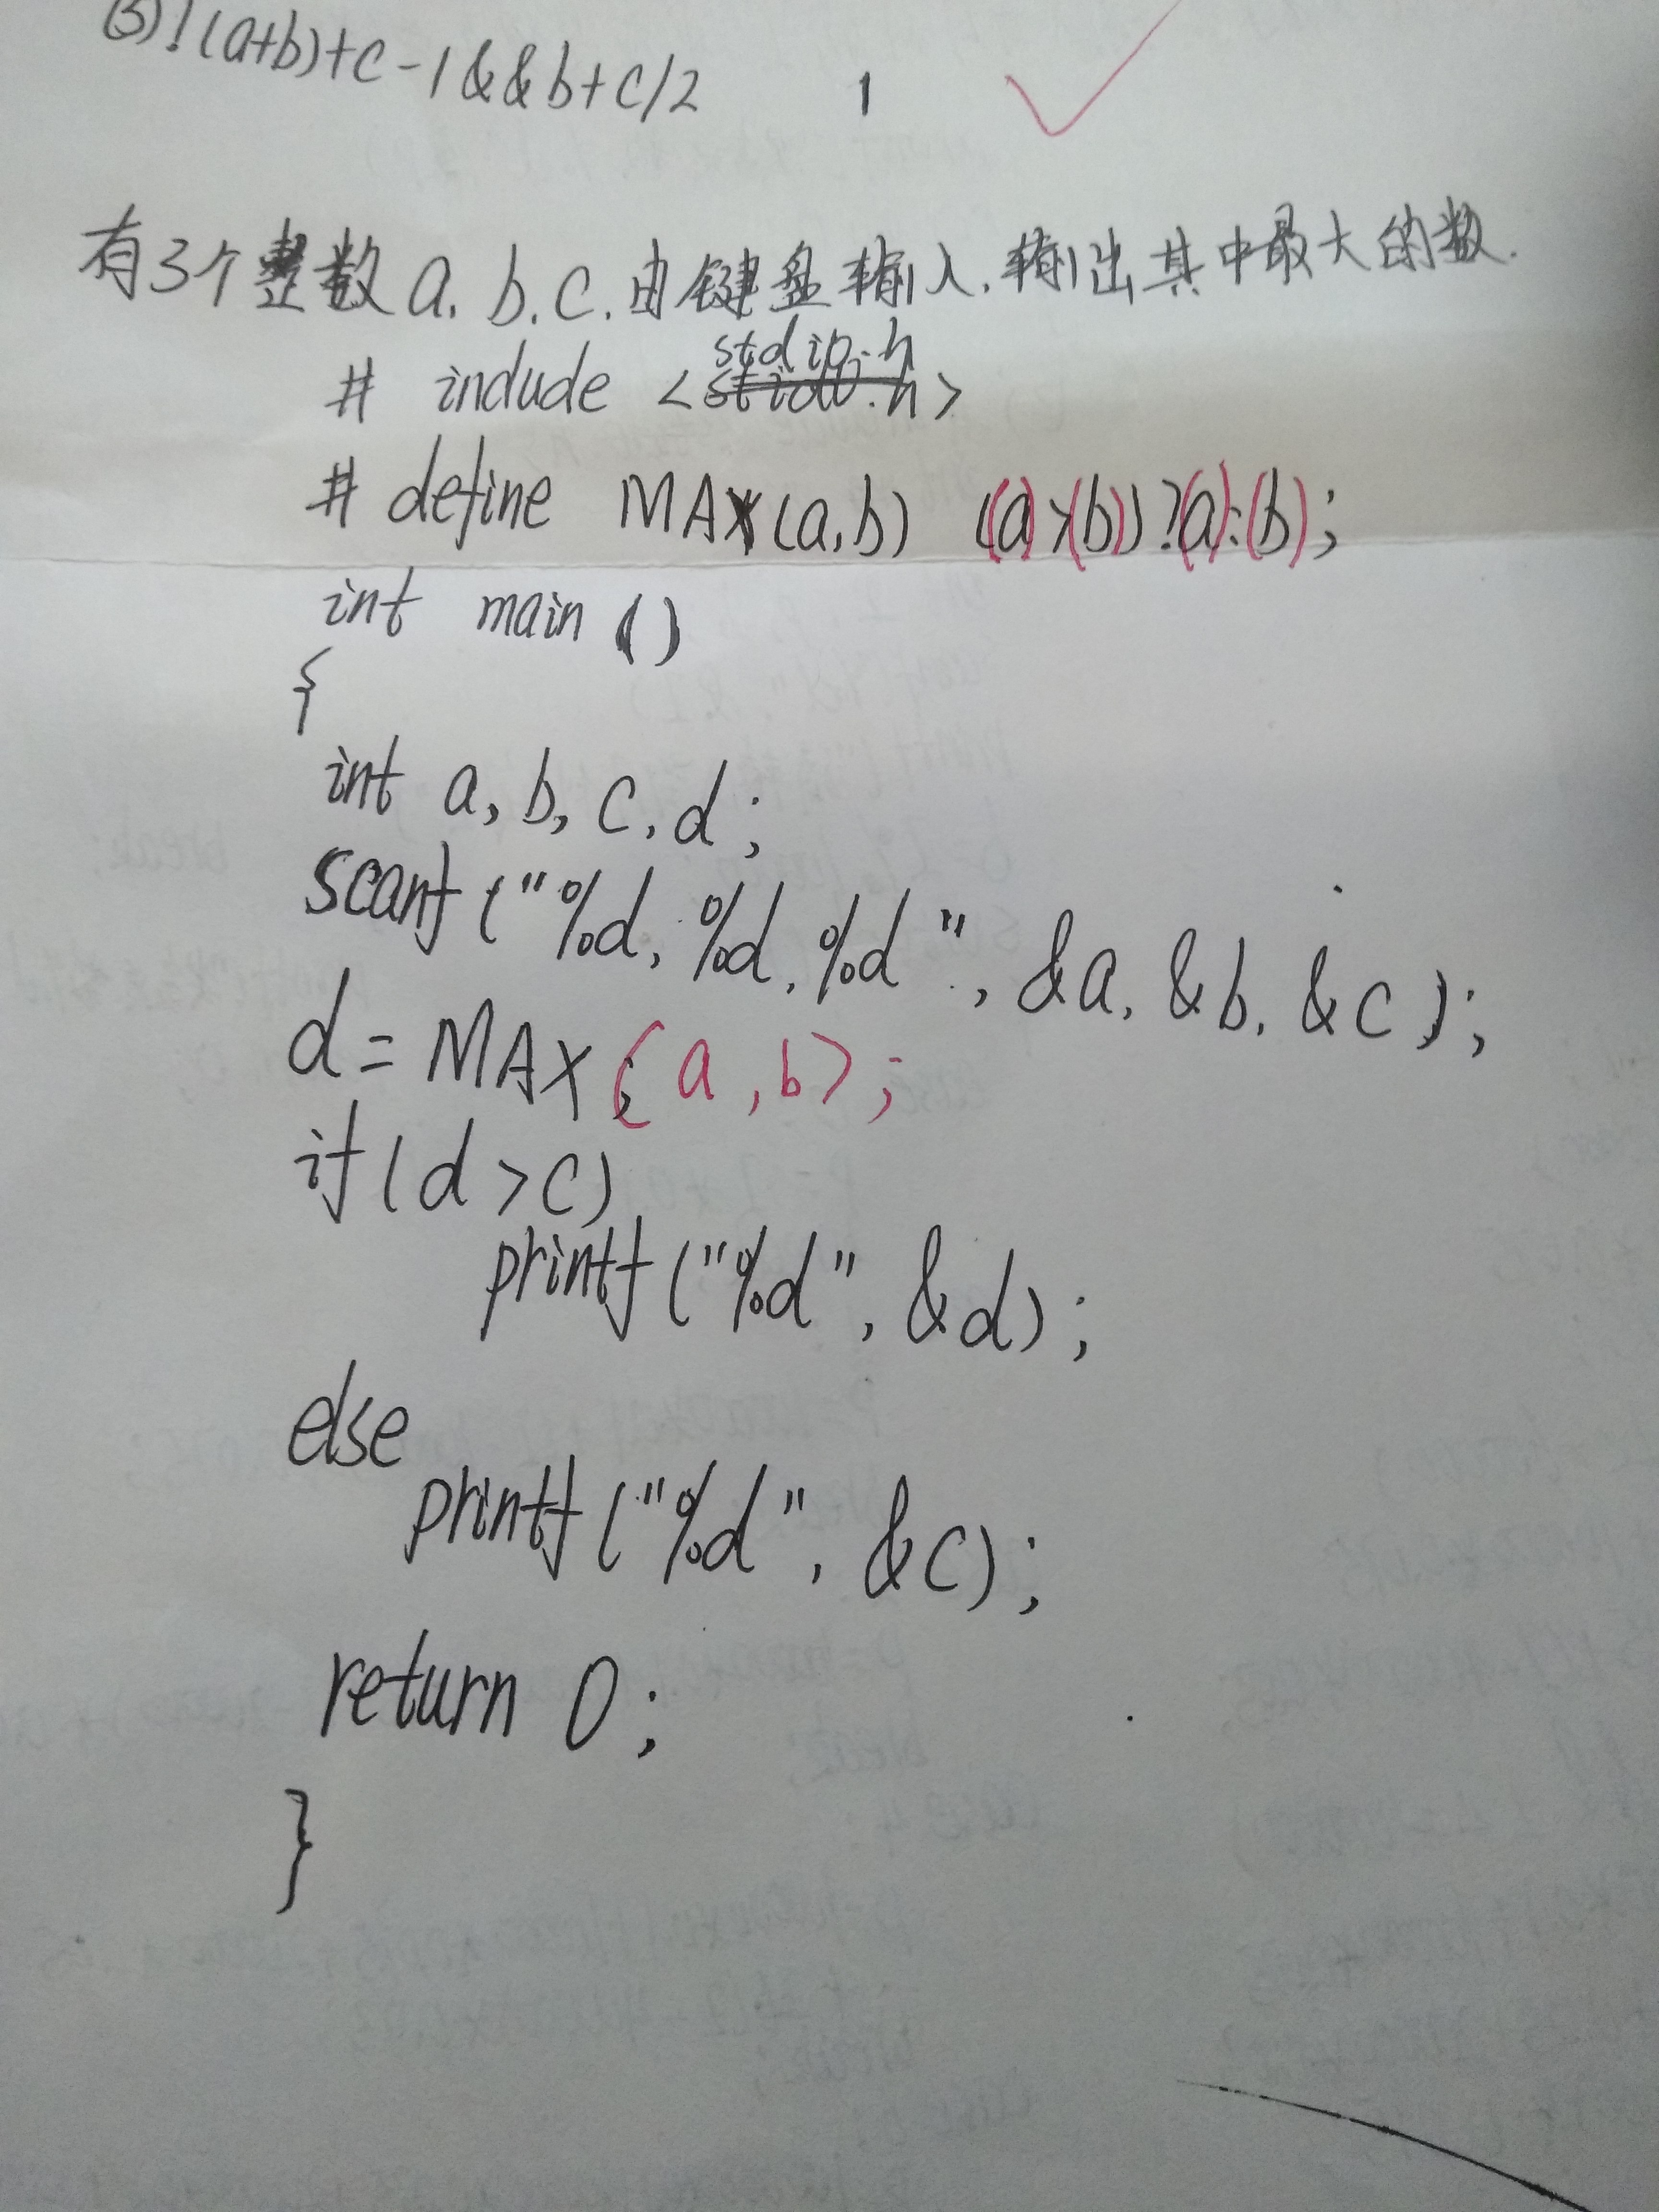 ⑤!(a+b)+c-1&&b+c/2 1
有3个整数a.b.c.由键盘输入.输出其中最大的数.
# include <stdio.h>
# define MAX(a,b) ((a)>(b))?(a):(b);
int main()
{
int a, b, c, d;
scanf("%d,%d,%d", &a, &b, &c);
d=MAX(a,b);
if(d>c)
printf("%d", &d);
else
printf("%d", &c);
return 0;
}